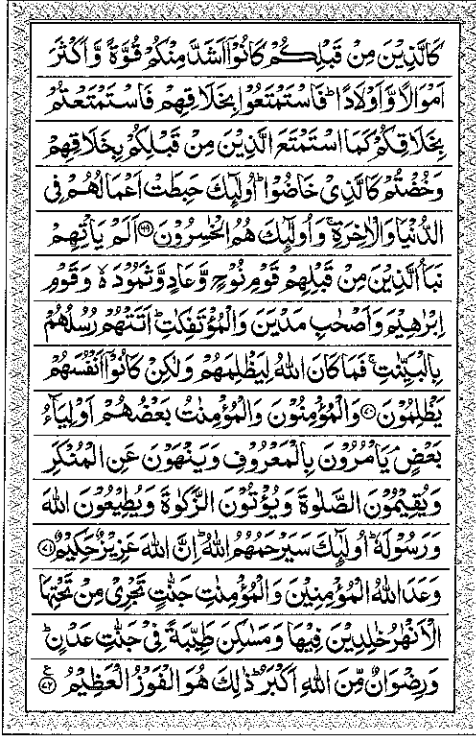 كَالَّذِيْنَ مِنْ قَبْلِكُمْ كَانُوْۤا اَشَدَّ مِنْكُمْ قُوَّةً وَّاَكْثَرَ
اَمْوَالًا وَّاَوْلَادًا ؕ فَاسْتَمْتَعُوْا بِخَلَاقِهِمْ فَاسْتَمْتَعْتُمْ
بِخَلَاقِكُمْ كَمَا اسْتَمْتَعَ الَّذِيْنَ مِنْ قَبْلِكُمْ بِخَلَاقِهِمْ
وَخُضْتُمْ كَالَّذِيْ خَاضُوْا ؕ اُولٰٓئِكَ حَبِطَتْ اَعْمَالُهُمْ فِى
الدُّنْيَا وَالْاٰخِرَةِ ۚ وَاُولٰٓئِكَ هُمُ الْخٰسِرُوْنَ ۝۶۹ اَلَمْ يَاْتِهِمْ
نَبَاُ الَّذِيْنَ مِنْ قَبْلِهِمْ قَوْمِ نُوْحٍ وَّعَادٍ وَّثَمُوْدَ ۙ وَقَوْمِ
اِبْرٰهِيْمَ وَاَصْحٰبِ مَدْيَنَ وَالْمُؤْتَفِكٰتِ ؕ اَتَتْهُمْ رُسُلُهُمْ
بِالْبَيِّنٰتِ ۚ فَمَا كَانَ اللّٰهُ لِيَظْلِمَهُمْ وَلٰكِنْ كَانُوْۤا اَنْفُسَهُمْ
يَظْلِمُوْنَ ۝۷۰ وَالْمُؤْمِنُوْنَ وَالْمُؤْمِنٰتُ بَعْضُهُمْ اَوْلِيَآءُ
بَعْضٍ ۘ يَاْمُرُوْنَ بِالْمَعْرُوْفِ وَيَنْهَوْنَ عَنِ الْمُنْكَرِ
وَيُقِيْمُوْنَ الصَّلٰوةَ وَيُؤْتُوْنَ الزَّكٰوةَ وَيُطِيْعُوْنَ اللّٰهَ
وَرَسُوْلَهٗ ؕ اُولٰٓئِكَ سَيَرْحَمُهُمُ اللّٰهُ ؕ اِنَّ اللّٰهَ عَزِيْزٌ حَكِيْمٌ ۝۷۱
وَعَدَ اللّٰهُ الْمُؤْمِنِيْنَ وَالْمُؤْمِنٰتِ جَنّٰتٍ تَجْرِيْ مِنْ تَحْتِهَا
الْاَنْهٰرُ خٰلِدِيْنَ فِيْهَا وَمَسٰكِنَ طَيِّبَةً فِيْ جَنّٰتِ عَدْنٍ ؕ
وَرِضْوَانٌ مِّنَ اللّٰهِ اَكْبَرُ ؕ ذٰلِكَ هُوَ الْفَوْزُ الْعَظِيْمُ ۝۷۲ ع